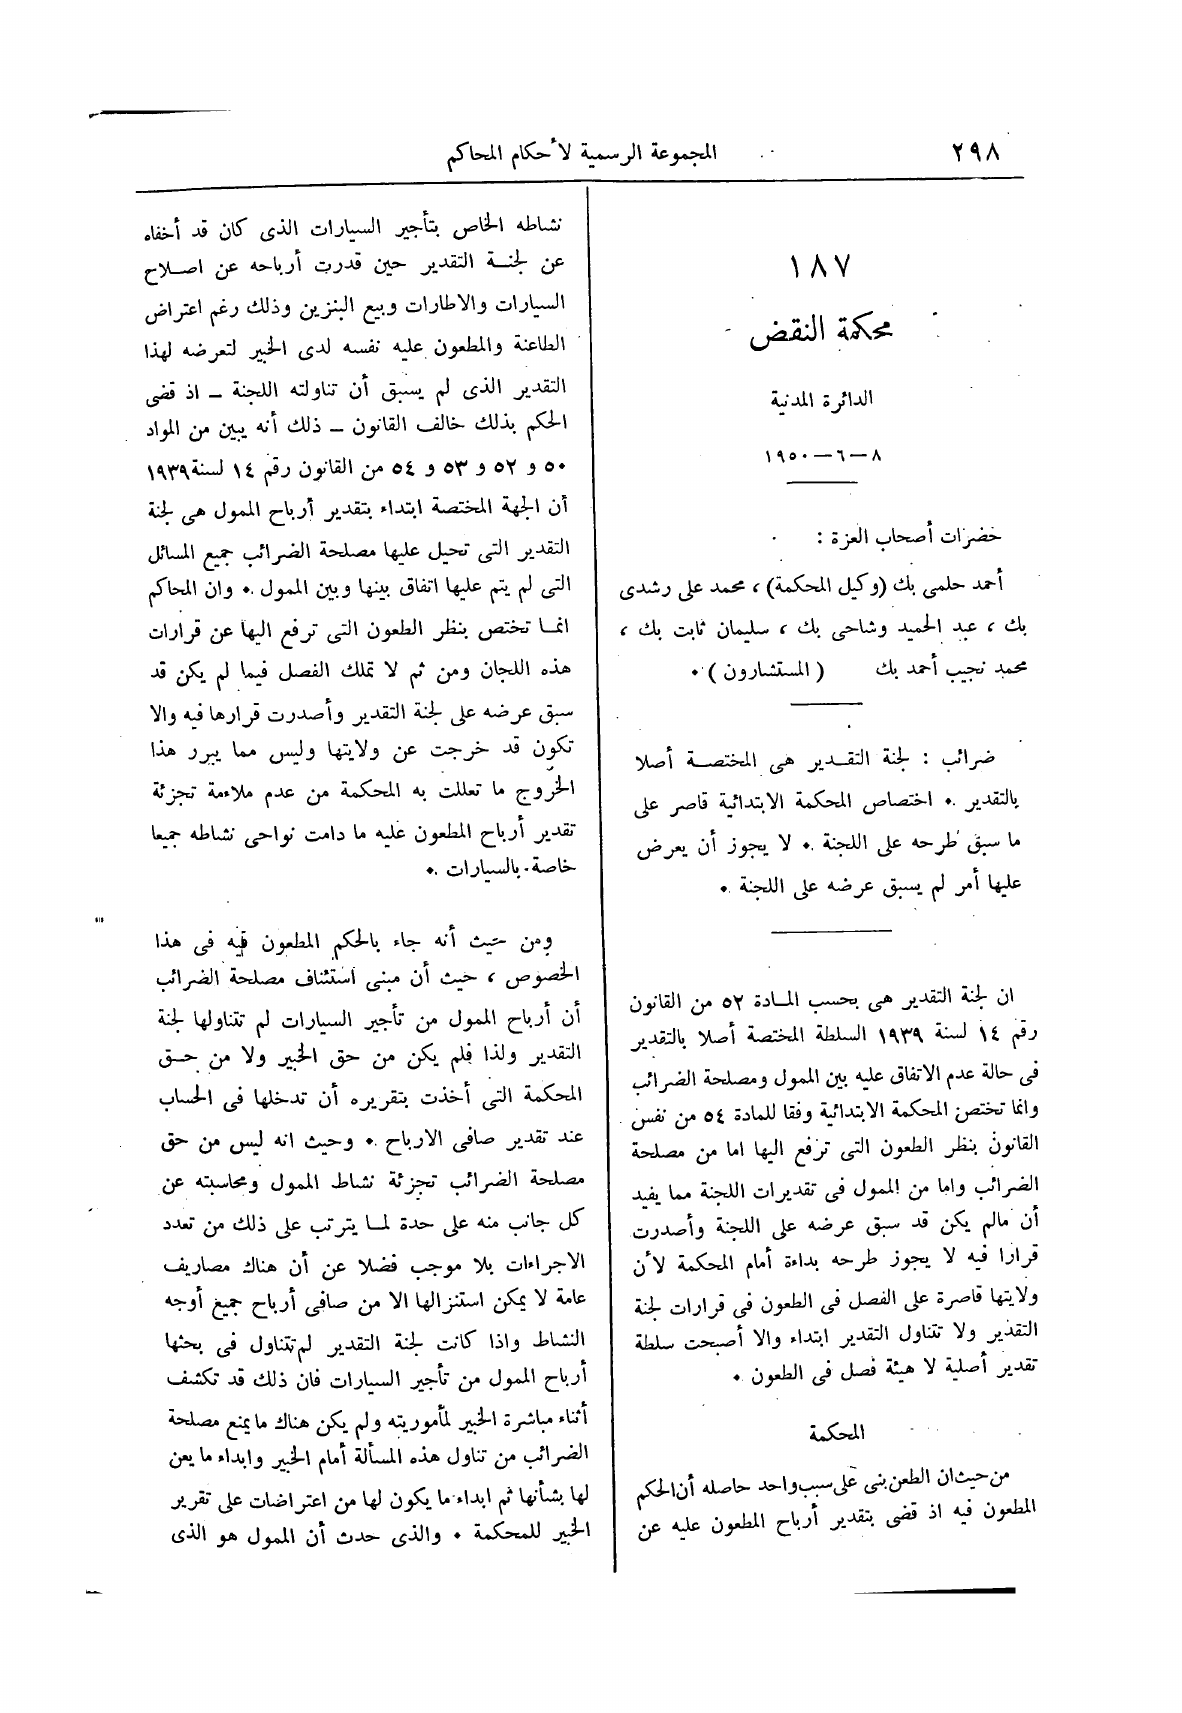 ٢٩٨
المجموعة الرسمية لأحكام المحاكم
١٨٧
محكمة النقض
الدائرة المدنية
٨ – ٦ – ١٩٥٠
حضرات أصحاب العزة :
أحمد حلمى بك (وكيل المحكمة) ، محمد على رشدى
بك ، عبد الحميد وشاحى بك ، سليمان ثابت بك ،
محمد نجيب أحمد بك ( المستشارون ) .
ضرائب : لجنة التقـدير هى المختصـة أصلا
بالتقدير . اختصاص المحكمة الابتدائية قاصر على
ما سبق طرحه على اللجنة . لا يجوز أن يعرض
عليها أمر لم يسبق عرضه على اللجنة .
ان لجنة التقدير هى بحسب المـادة ٥٢ من القانون
رقم ١٤ لسنة ١٩٣٩ السلطة المختصة أصلا بالتقدير
فى حالة عدم الاتفاق عليه بين الممول ومصلحة الضرائب
وانما تختص المحكمة الابتدائية وفقا للمادة ٥٤ من نفس
القانون بنظر الطعون التى ترفع اليها اما من مصلحة
الضرائب واما من الممول فى تقديرات اللجنة مما يفيد
أن مالم يكن قد سبق عرضه على اللجنة وأصدرت
قرارا فيه لا يجوز طرحه بداءة أمام المحكمة لأن
ولايتها قاصرة على الفصل فى الطعون فى قرارات لجنة
التقدير ولا تتناول التقدير ابتداء والا أصبحت سلطة
تقدير أصلية لا هيئة فصل فى الطعون .
المحكمة
من حيث ان الطعن بنى على سبب واحد حاصله أن الحكم
المطعون فيه اذ قضى بتقدير أرباح المطعون عليه عن
نشاطه الخاص بتأجير السيارات الذى كان قد أخفاه
عن لجنـة التقدير حين قدرت أرباحه عن اصـلاح
السيارات والاطارات وبيع البنزين وذلك رغم اعتراض
الطاعنة والمطعون عليه نفسه لدى الخبير لتعرضه لهذا
التقدير الذى لم يسبق أن تناولته اللجنة – اذ قضى
الحكم بذلك خالف القانون – ذلك أنه يبين من المواد
٥٠ و ٥٢ و ٥٣ و ٥٤ من القانون رقم ١٤ لسنة ١٩٣٩
أن الجهة المختصة ابتداء بتقدير أرباح الممول هى لجنة
التقدير التى تحيل عليها مصلحة الضرائب جميع المسائل
التى لم يتم عليها اتفاق بينها وبين الممول . وان المحاكم
انمـا تختص بنظر الطعون التى ترفع اليها عن قرارات
هذه اللجان ومن ثم لا تملك الفصل فيما لم يكن قد
سبق عرضه على لجنة التقدير وأصدرت قرارها فيه والا
تكون قد خرجت عن ولايتها وليس مما يبرر هذا
الخروج ما تعللت به المحكمة من عدم ملاءمة تجزئة
تقدير أرباح المطعون عليه ما دامت نواحى نشاطه جميعا
خاصة بالسيارات .
ومن حيث أنه جاء بالحكم المطعون فيه فى هذا
الخصوص ، حيث أن مبنى استئناف مصلحة الضرائب
أن أرباح الممول من تأجير السيارات لم تتناولها لجنة
التقدير ولذا فلم يكن من حق الخبير ولا من حـق
المحكمة التى أخذت بتقريره أن تدخلها فى الحساب
عند تقدير صافى الارباح . وحيث انه ليس من حق
مصلحة الضرائب تجزئة نشاط الممول ومحاسبته عن
كل جانب منه على حدة لمـا يترتب على ذلك من تعدد
الاجراءات بلا موجب فضلا عن أن هناك مصاريف
عامة لا يمكن استنزالها الا من صافى أرباح جميع أوجه
النشاط واذا كانت لجنة التقدير لم تتناول فى بحثها
أرباح الممول من تأجير السيارات فان ذلك قد تكشف
أثناء مباشرة الخبير لمأموريته ولم يكن هناك ما يمنع مصلحة
الضرائب من تناول هذه المسألة أمام الخبير وابداء ما يعن
لها بشأنها ثم ابداء ما يكون لها من اعتراضات على تقرير
الخبير للمحكمة . والذى حدث أن الممول هو الذى